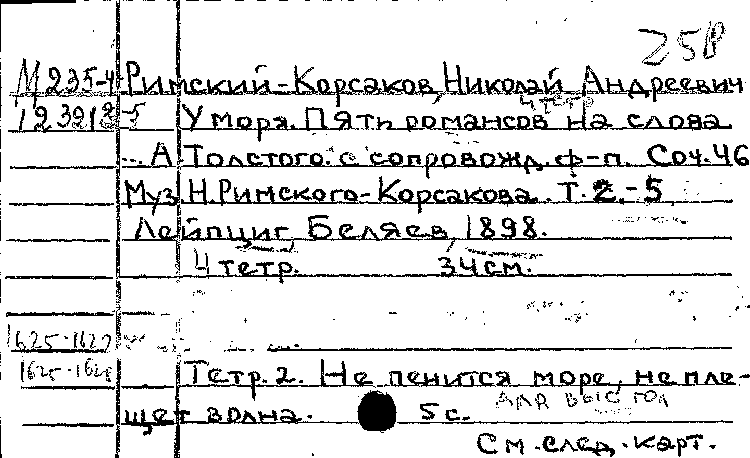 25р
М 235-4 Римский-Корсаков, Николай Андреевич
123212-5 У моря. Пять романсов на слова
... А. Толстого. с сопровожд. ф-п. Соч. 46
Муз. Н. Римского-Корсакова. Т. 2.-5
Лейпциг, Беляев, 1898.
4 тетр. 34 см.
1625-1627
1625-1628 Тетр. 2. Не пенится море, не пле-
щет волна. 5 с. для выс гол
См. след. карт.